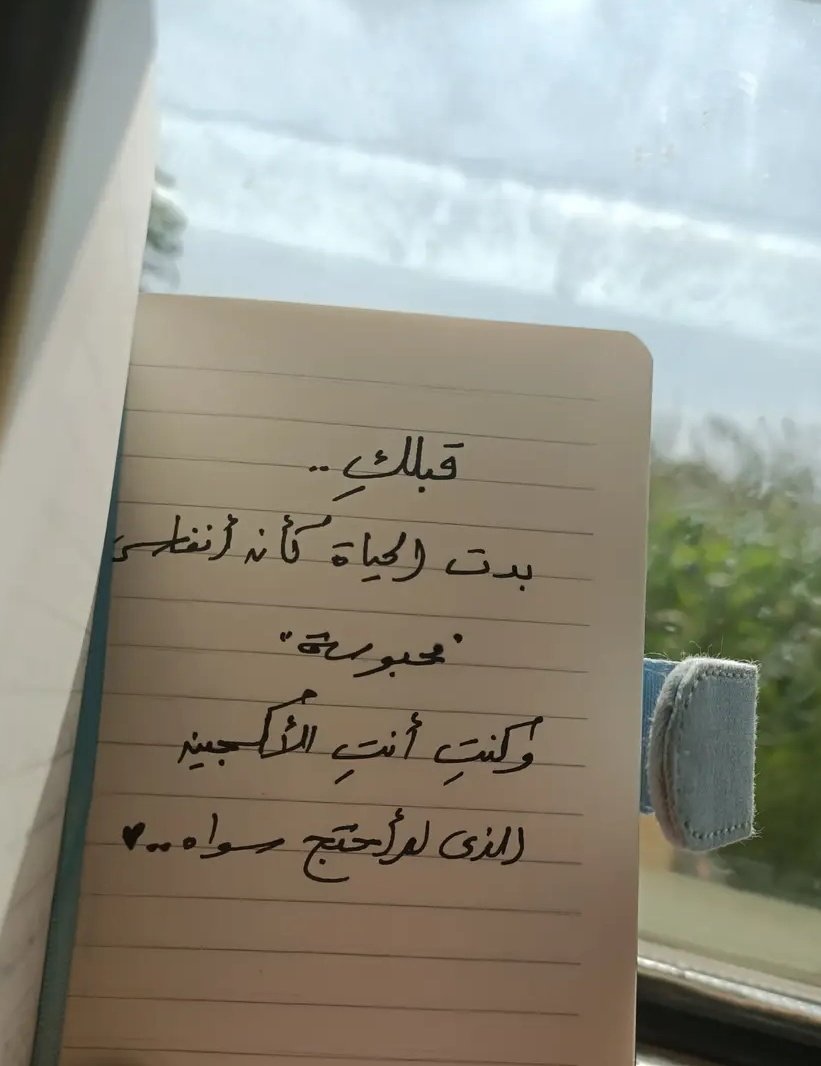 قبلكِ ..
بدت الحياة كأنه أنفاس
"محبوسة"
وكنتِ أنتِ الأكسجين
الذى لم أحتج سواه..♥